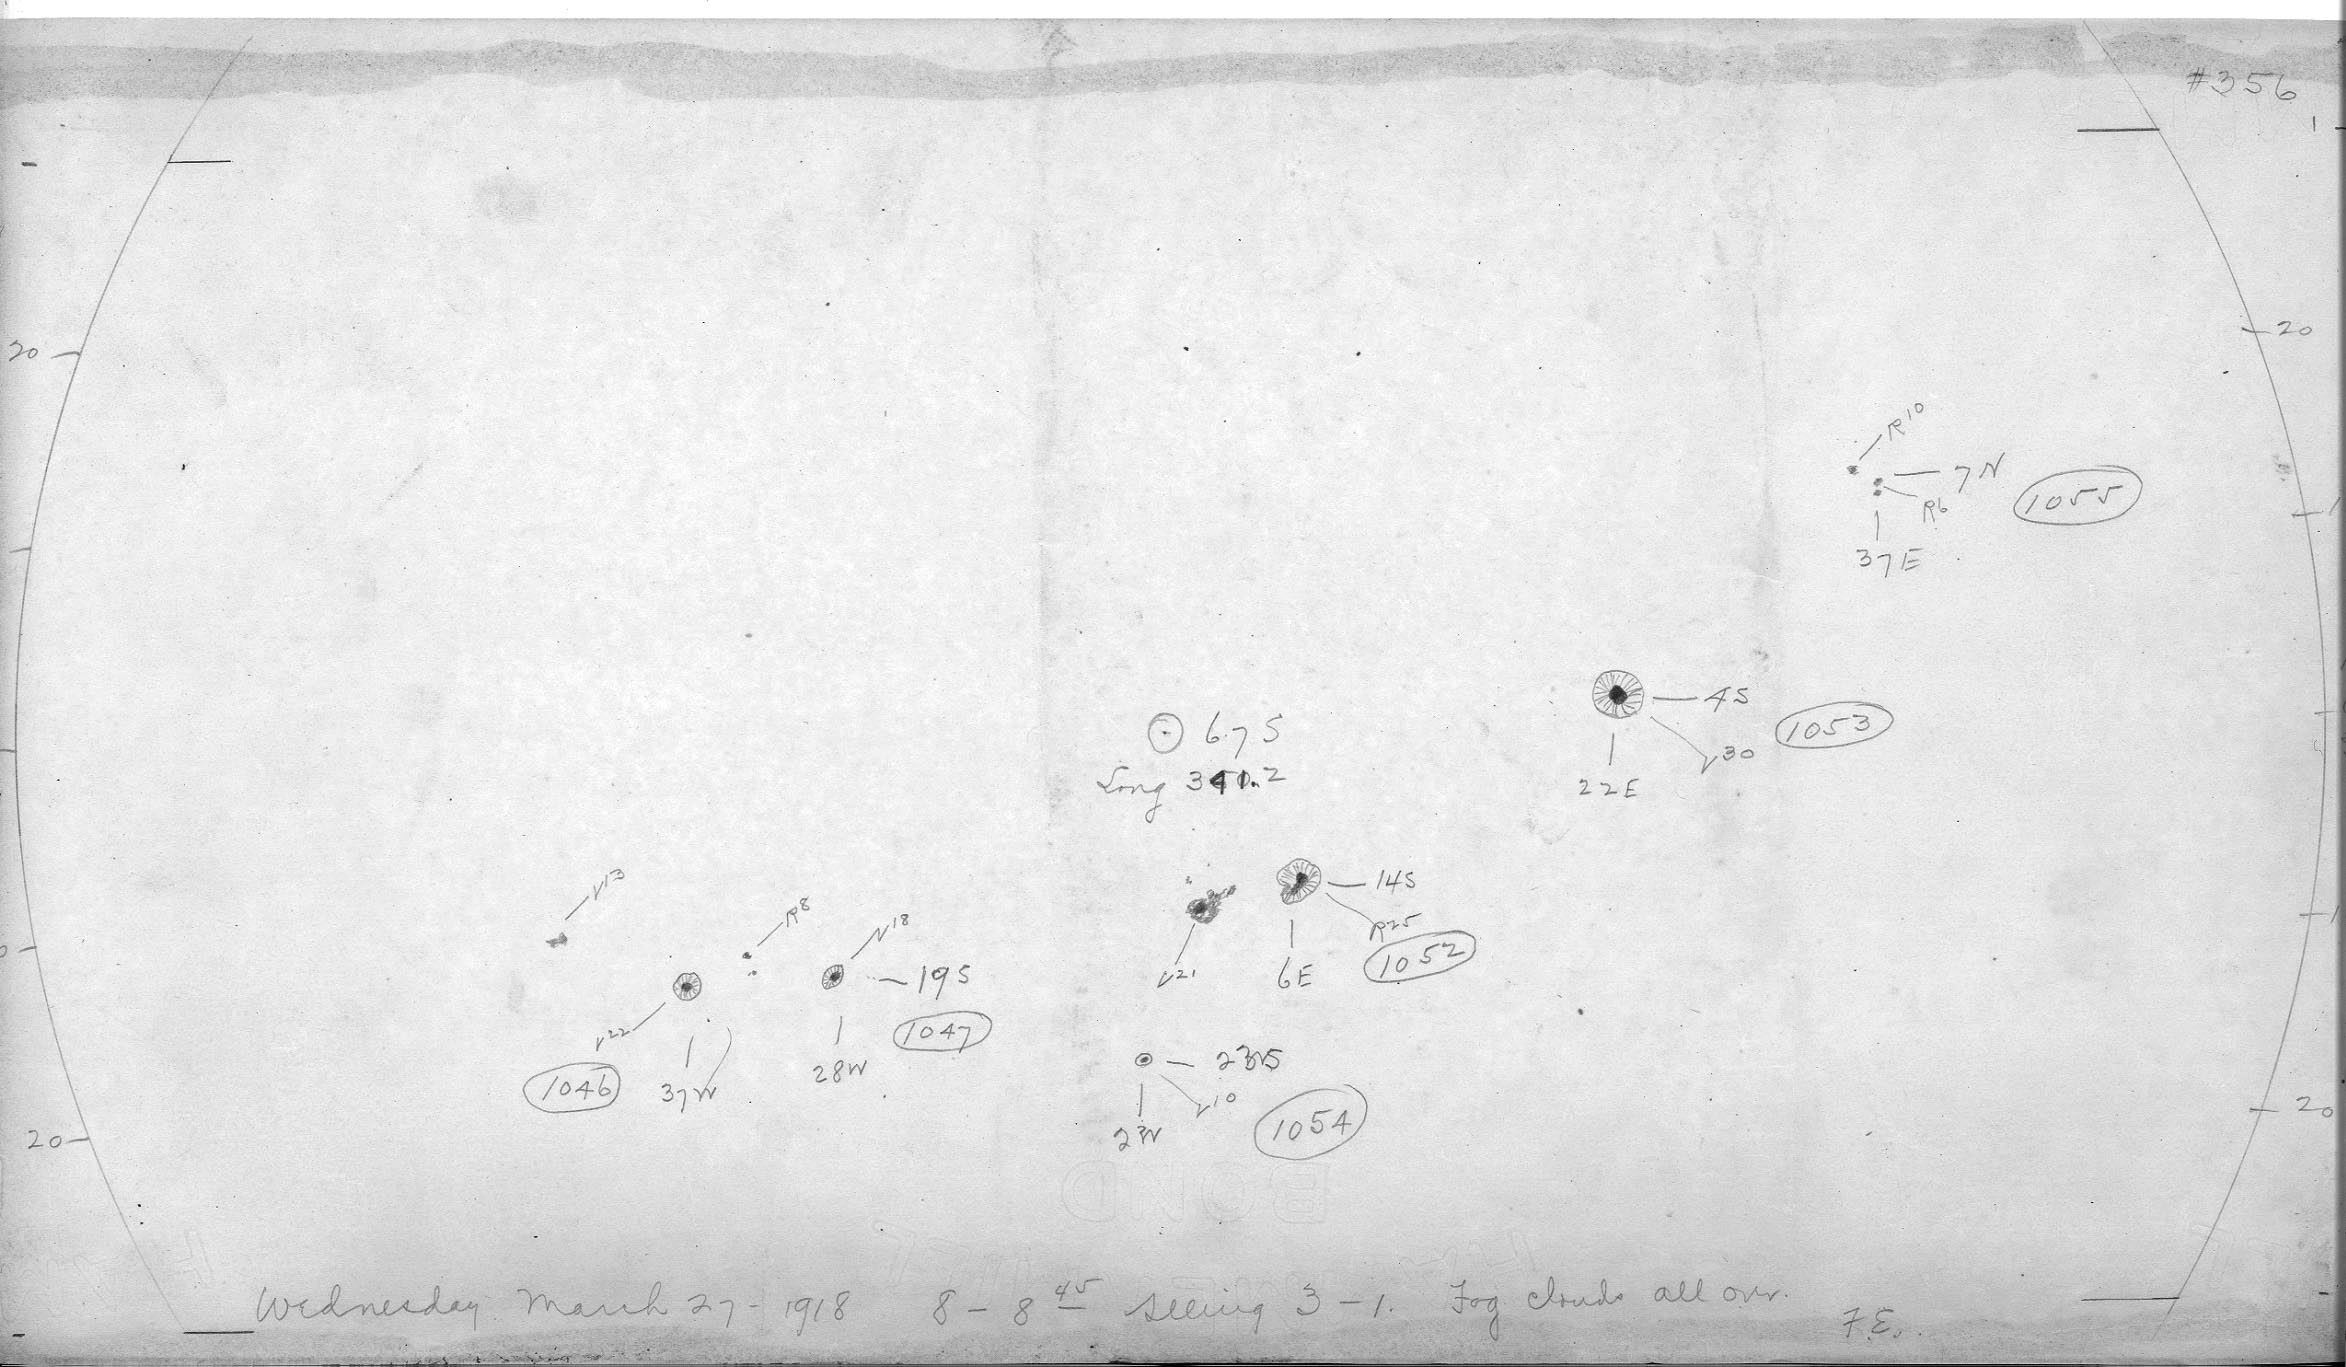 #356
20
20
R10
7N
R6
1055
37E
4S
1053
V30
22E
6.7S
Long 341.2
V13
R8
V18
19S
1047
28W
V22
1046
37W
14S
R25
1052
6E
V21
V10
1054
20
20
BOND
Wednesday March 27 - 1918 8 - 8 45 Seeing 3 - 1. Fog clouds all over.
F.E.